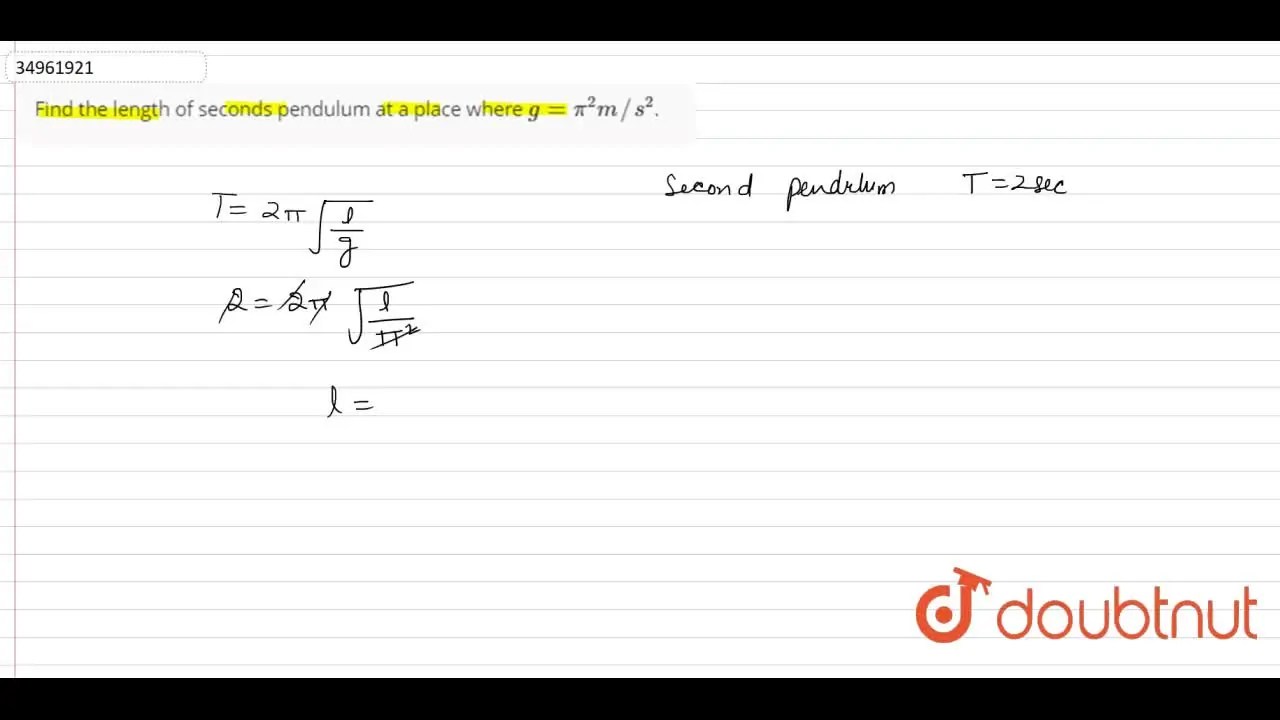 34961921
Find the length of seconds pendulum at a place where g = π² m/s².
Second pendulum T = 2sec
T = 2π √(l/g)
2 = 2π √(l/π²)
l =
doubtnut